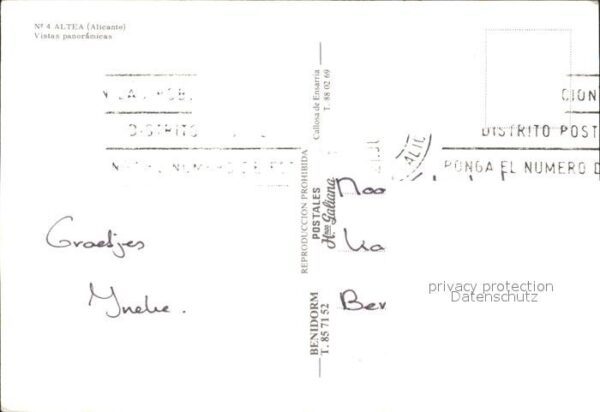 Nº 4 ALTEA (Alicante)
Vistas panorámicas
DISTRITO
NUMERO DE
CION
DISTRITO POST
PONGA EL NUMERO D
Groetjes
Ineke.
BENIDORM
T. 85 71 52
REPRODUCCION PROHIBIDA
POSTALES
Hnos Galiana
Callosa de Ensarria
T. 88 02 69
Noo
Ber
privacy protection
Datenschutz